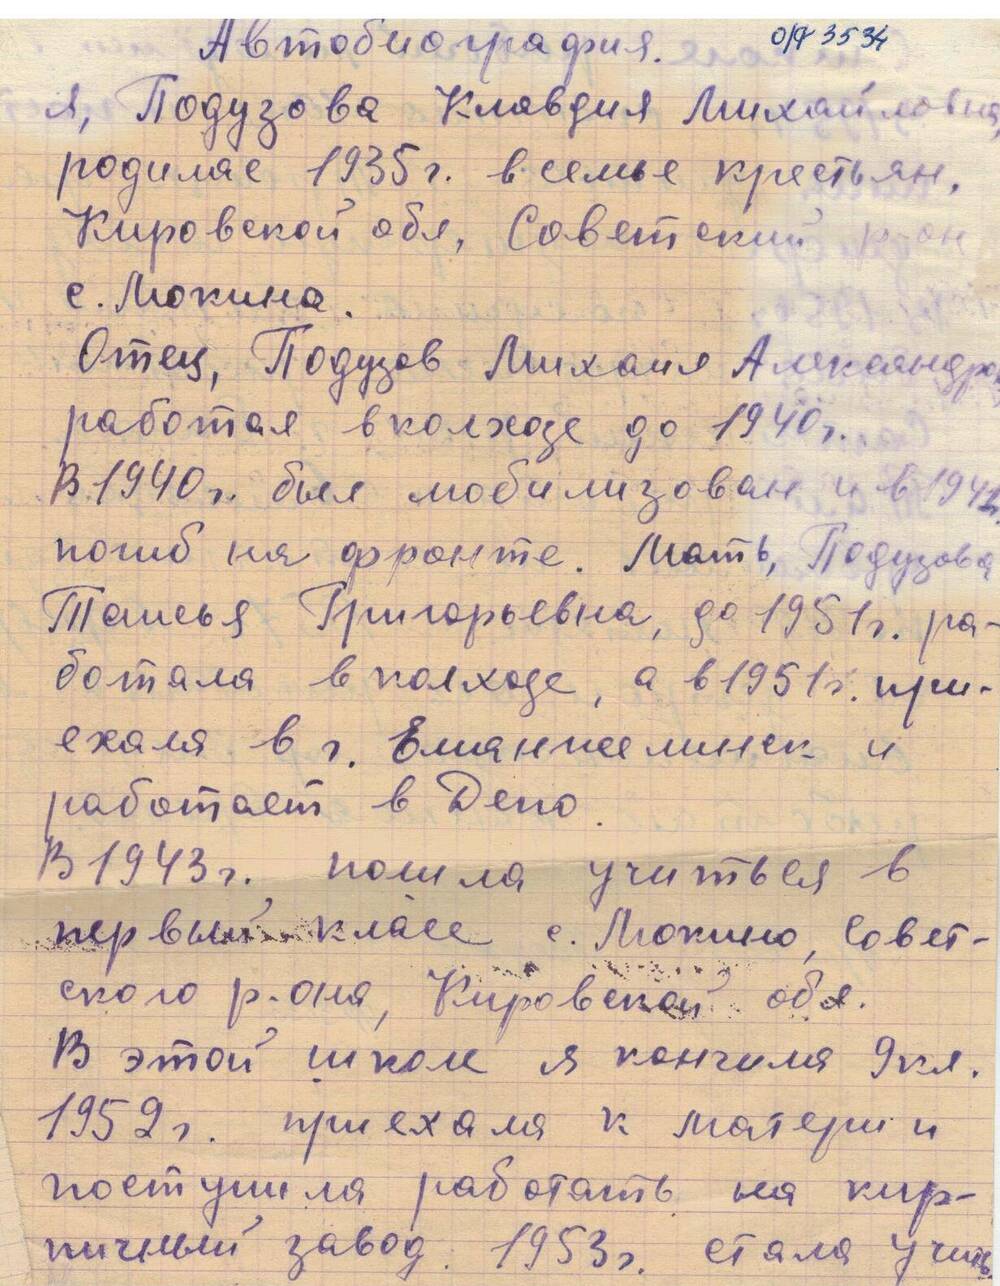 Автобиография. О/Ф 3534
Я, Подузова Клавдия Михайловна,
родилас 1935г. в семье крестьян,
Кировской обл, Советский р-он
с. Мокина.
Отец, Подузов Михаил Александров
работал в колхозе до 1940г.
В 1940г. был мобилизован и в
погиб на фронте. Мать, Подузова
Таисья Григорьевна, до 1951г. ра-
ботала в колхозе, а в 1951г. при-
ехала в г. Еманжелинск и
работает в Депо.
В 1943г. пошла учиться в
первый класс с. Мокино, Совет-
ского р-она, Кировской обл.
В этой школе я кончила 9кл.
1952г. приехала к матери и
поступила работать на кир-
пичный завод. 1953г. стала учить